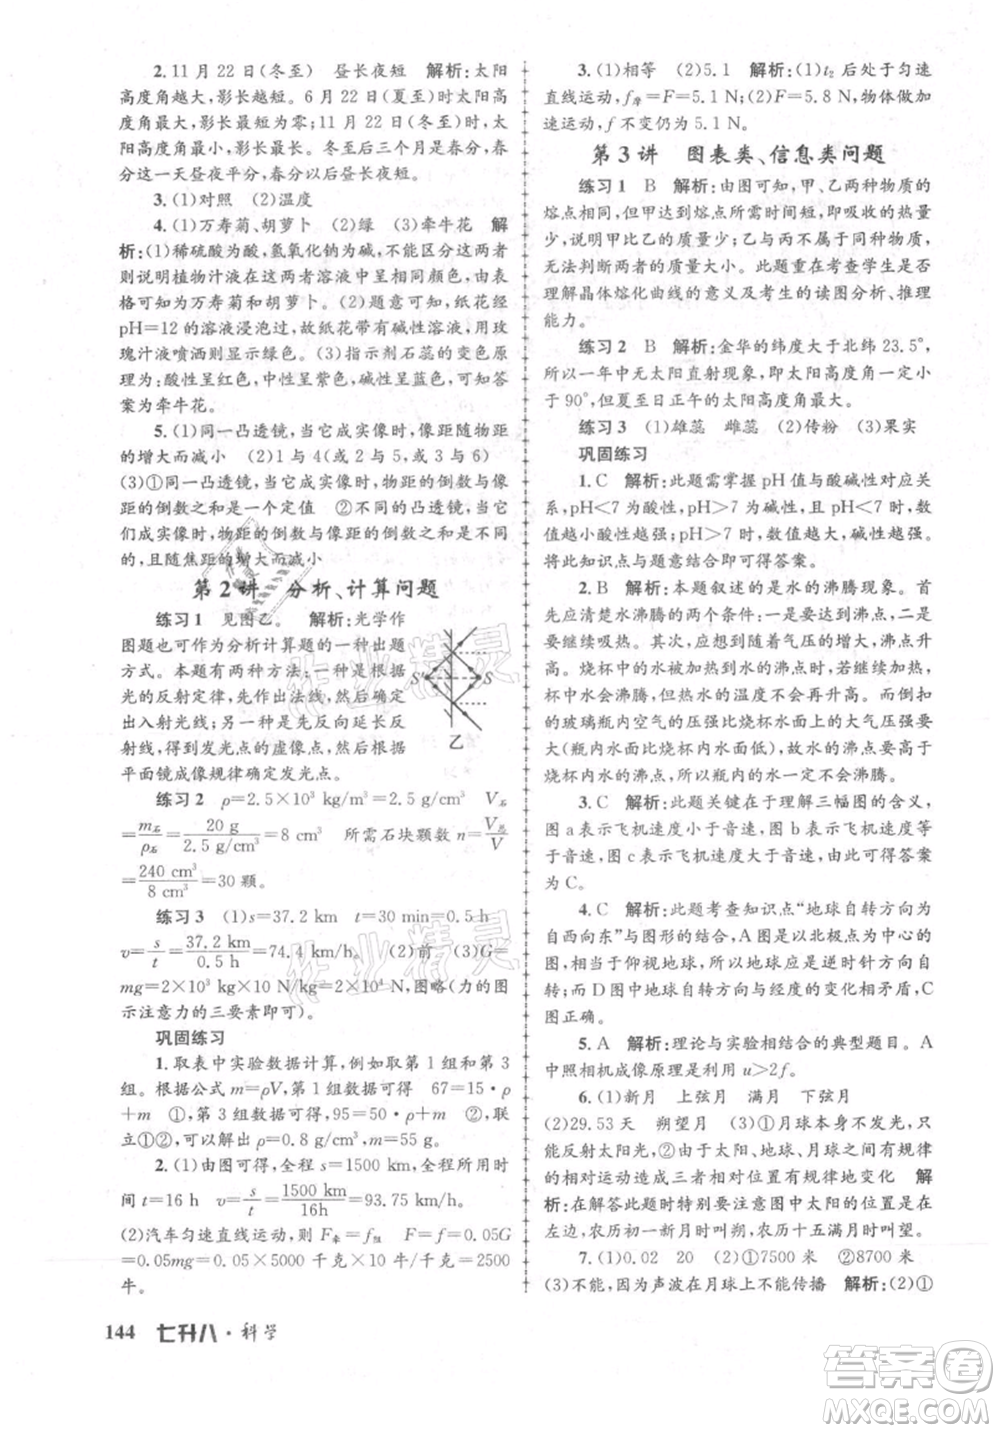 2. 11 月 22 日(冬至) 昼长夜短 解析:太阳
高度角越大,影长越短。6 月 22 日(夏至)太阳高
度角最大,影长最短;11 月 22 日(冬至),太阳高
度角最小,影长最长;太阳直射赤道为春分,春分
这一天昼夜平分,所以影长相等。
3. (1)对照 (2)温度
4. (1)万寿菊、胡萝卜 (2)绿 (3)牵牛花 解
析:(1)稀硫酸为酸,氢氧化钠为碱,不能区分这两者
则说明植物汁液在这两者溶液中相同颜色,结合
表格可知为万寿菊和胡萝卜。(2)题意可知,纸花经
pH=12 的溶液浸泡过,故纸花带有碱性溶液,用玫
瑰汁液喷洒则显绿色。(3)指示剂石蕊的颜色变化
为:酸性呈红色,中性呈紫色,碱性呈蓝色,对比可知
答案为牵牛花。
5. (1)同一凸透镜,当它成实像时,像距随物距
的增大而减小 (2)1与4(或 2 与 5 或 3 与 6)
(3)①同一凸透镜,当它成实像时,物距的倒数与像
距的倒数之和为一定值 ②不同的凸透镜,当它们
都成实像时,物距的倒数与像距的倒数之和是不同
的,且随焦距的增大而减小
第 2 讲 分析、计算问题
练习 1 见图乙。 解析:光学作
图题也可作为分析计算题的一种出题
方式。本题有两种方法:第一种根据
光的反射定律,先作出法线,然后确定
出入射光线。第二种先反向延长反射
光线,得到发光点的虚像点,然后根据
平面镜成像规律确定发光点。
S' S
乙
练习 2 ρ=2.5×10³ kg/m³=2.5 g/cm³ V石
=m石/ρ石=20 g/2.5 g/cm³=8 cm³ 所需石块颗数 n=V总/V
=240 cm³/8 cm³=30 颗。
练习 3 (1)s=37.2 km t=30 min=0.5 h
v=s/t=37.2 km/0.5 h=74.4 km/h。 (2)前 (3)G=
mg=2×10³ kg×10 N/kg=2×10⁴ N,图略(力的图
示注意力的三要素即可)
巩固练习
1. 取表中实验数据计算,例如取第 1 组和第 3
组。根据公式 m=ρV,第 1 组数据可得 67=15·ρ
+m ①,第 3 组数据可得,95=50·ρ+m ②,联
立①②,可以解出 ρ=0.8 g/cm³,m=55 g。
2. (1)由图可得,全程 s=1500 km,全程所用时
间 t=16 h v=s/t=1500 km/16h=93.75 km/h。
(2)汽车匀速直线运动,则 F牵=f阻=f=0.05G
=0.05mg=0.05×5000 千克×10 牛/千克=2500
牛。
3. (1)相等 (2)5.1 解析:(1)t₂ 后处于匀速
直线运动,f摩=F=5.1 N;(2)F=5.8 N,物体做加
速运动,f 不变仍为 5.1 N。
第 3 讲 图表类、信息类问题
练习 1 B 解析:由图可知,甲、乙两种物质的
熔点相同,但甲达到熔点所需时间短,即吸收的热量
少,说明甲比乙的质量少;乙与甲属于同种物质,
无法判断两者的质量大小。此题重在考查学生是否
理解晶体熔化曲线的意义及考生的读图分析、推理
能力。
练习 2 B 解析:金华的纬度大于北纬 23.5°,
所以一年中无太阳直射现象,即太阳高度角一定小
于 90°,但夏至日正午的太阳高度角最大。
练习 3 (1)雄蕊 雌蕊 (2)传粉 (3)果实
巩固练习
1. C 解析:此题需掌握 pH 值与酸碱性对应关
系,pH<7 为酸性,pH>7 为碱性,且 pH<7 时,数
值越小酸性越强;pH>7 时,数值越大,碱性越强。
结合题意即可得答案。
2. B 解析:本题叙述的是水的沸腾现象。首
先应清楚水沸腾的两个条件:一是要达到沸点,二是
要继续吸热。其次沸点随着气压的增大,沸点升
高。烧杯中的水被加热到沸点时,若继续加热,则烧
杯中水会沸腾,但热水的温度不再升高。而倒扣
的玻璃瓶内空气的压强比烧杯水中大气的压强要
大(瓶内水面比烧杯内水面低),故水的沸点大于
烧杯内水的沸点,瓶内的水一定不会沸腾。
3. C 解析:此题关键在于理解三幅图的意义。
图 a 表示飞机速度小于音速,图 b 表示飞机速度等
于音速,图 c 表示飞机速度大于音速,所以此题答案
为 C。
4. C 解析:此题考查知识点“地球自转方向为
自西向东”与图形的结合,A 图是以北极点为中心的
图,相当于仰视地球,地球应是逆时针方向自转,A
错;而 D 图中地球自转方向与经度的变化相矛盾,C
图正确。
5. A 解析:理论与实验相结合的典型题目。A
中照相机成像原理是利用 u>2f。
6. (1)新月 上弦月 满月 下弦月
(2)29.53 天 朔望月 (3)①月球本身不发光,只
能反射太阳光,②由于太阳、地球、月球不停有规律
的相对运动造成三者相对位置有规律地变化 解
析:在解答此题时特别要注意图中太阳的位置是在
左边,农历初一月相叫朔,农历十五满月叫望。
7. (1)0.02 20 (2)①7500 米 ②8700 米
(3)不能,因为声波在月球上不能传播 解析:(2)①
144 七升八·科学
作业精灵
作业精灵
答案卷
MXQE.COM